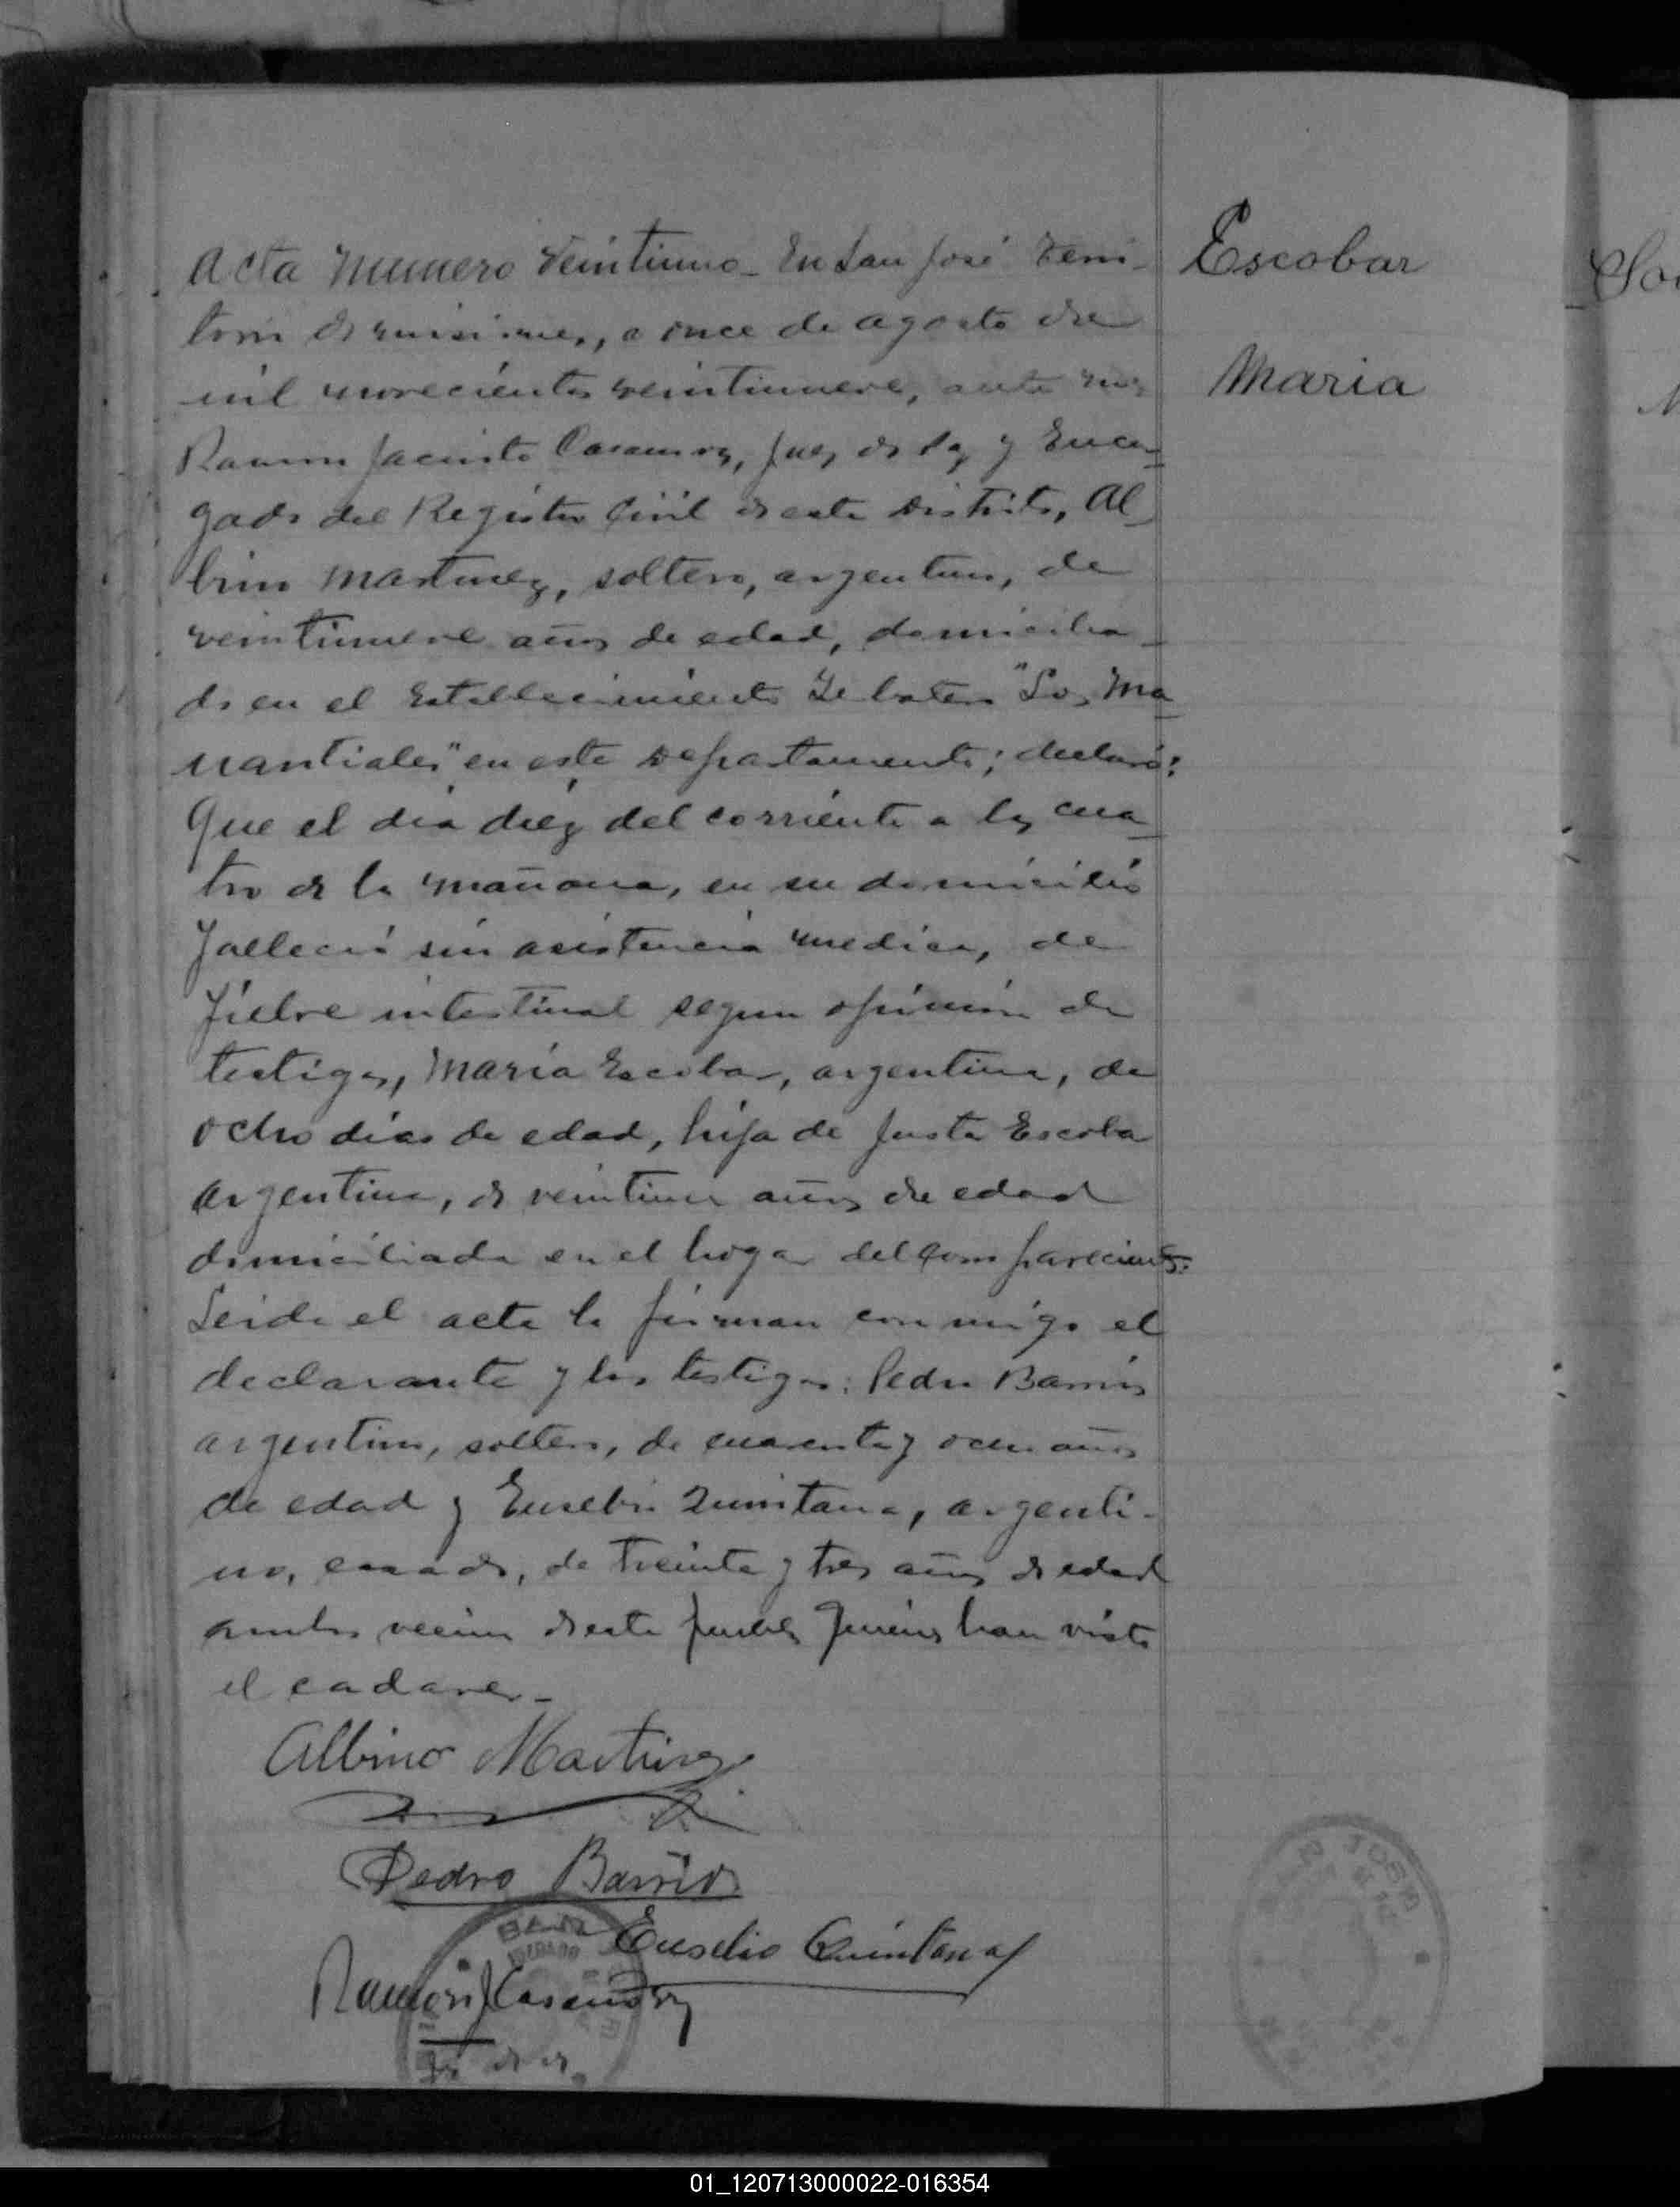 Acta Numero Veintiuno_ En San José Terri-
torio de misiones, a once de agosto de
mil novecientos veintinueve, ante mi,
Ramon Jacinto Casanova, Juez de Paz y Encar_
gado del Registro Civil de este Distrito, Al_
bino Martinez, soltero, argentino, de
veintinueve años de edad, domicilia_
do en el Establecimiento Yerbatero "Los Ma_
nantiales" en este Departamento; declaró:
Que el día diez del corriente a las cua_
tro de la mañana, en su domicilio
falleció sin asistencia medica, de
fiebre intestinal segun opinión de
testigos, María Escobar, argentina, de
ocho días de edad, hija de Justa Escobar
argentina, de veintiun años de edad
domiciliada en el hogar del compareciente.
Leida el acta la firman conmigo el
declarante y los testigos: Pedro Barrios
argentino, soltero, de cuarenta y ocho años
de edad y Eusebio Quintana, argenti-
no, casado, de treinta y tres años de edad
ambos vecinos de este pueblo quienes han visto
el cadaver_
Albino Martinez
Pedro Barrios
Eusebio Quintana
Ramón J Casanova
Escobar
Maria
01_120713000022-016354